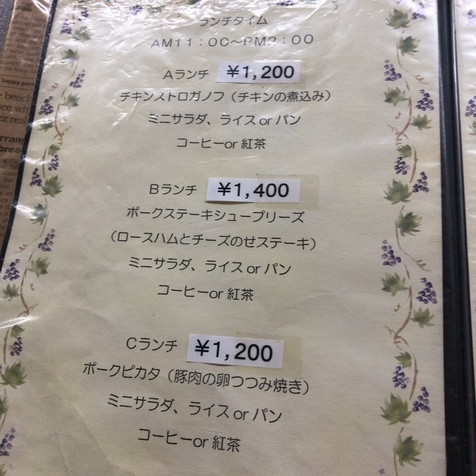 ランチタイム
AM11:00~PM2:00
Aランチ ¥1,200
チキンストロガノフ(チキンの煮込み)
ミニサラダ、ライス or パン
コーヒーor 紅茶
Bランチ ¥1,400
ポークステーキシュープリーズ
(ロースハムとチーズのせステーキ)
ミニサラダ、ライス or パン
コーヒーor 紅茶
Cランチ ¥1,200
ポークピカタ(豚肉の卵つつみ焼き)
ミニサラダ、ライス or パン
コーヒーor 紅茶